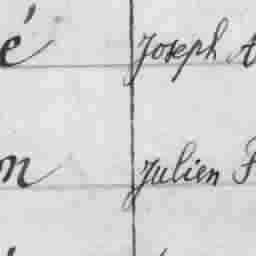 é Joseph A
n Julien F